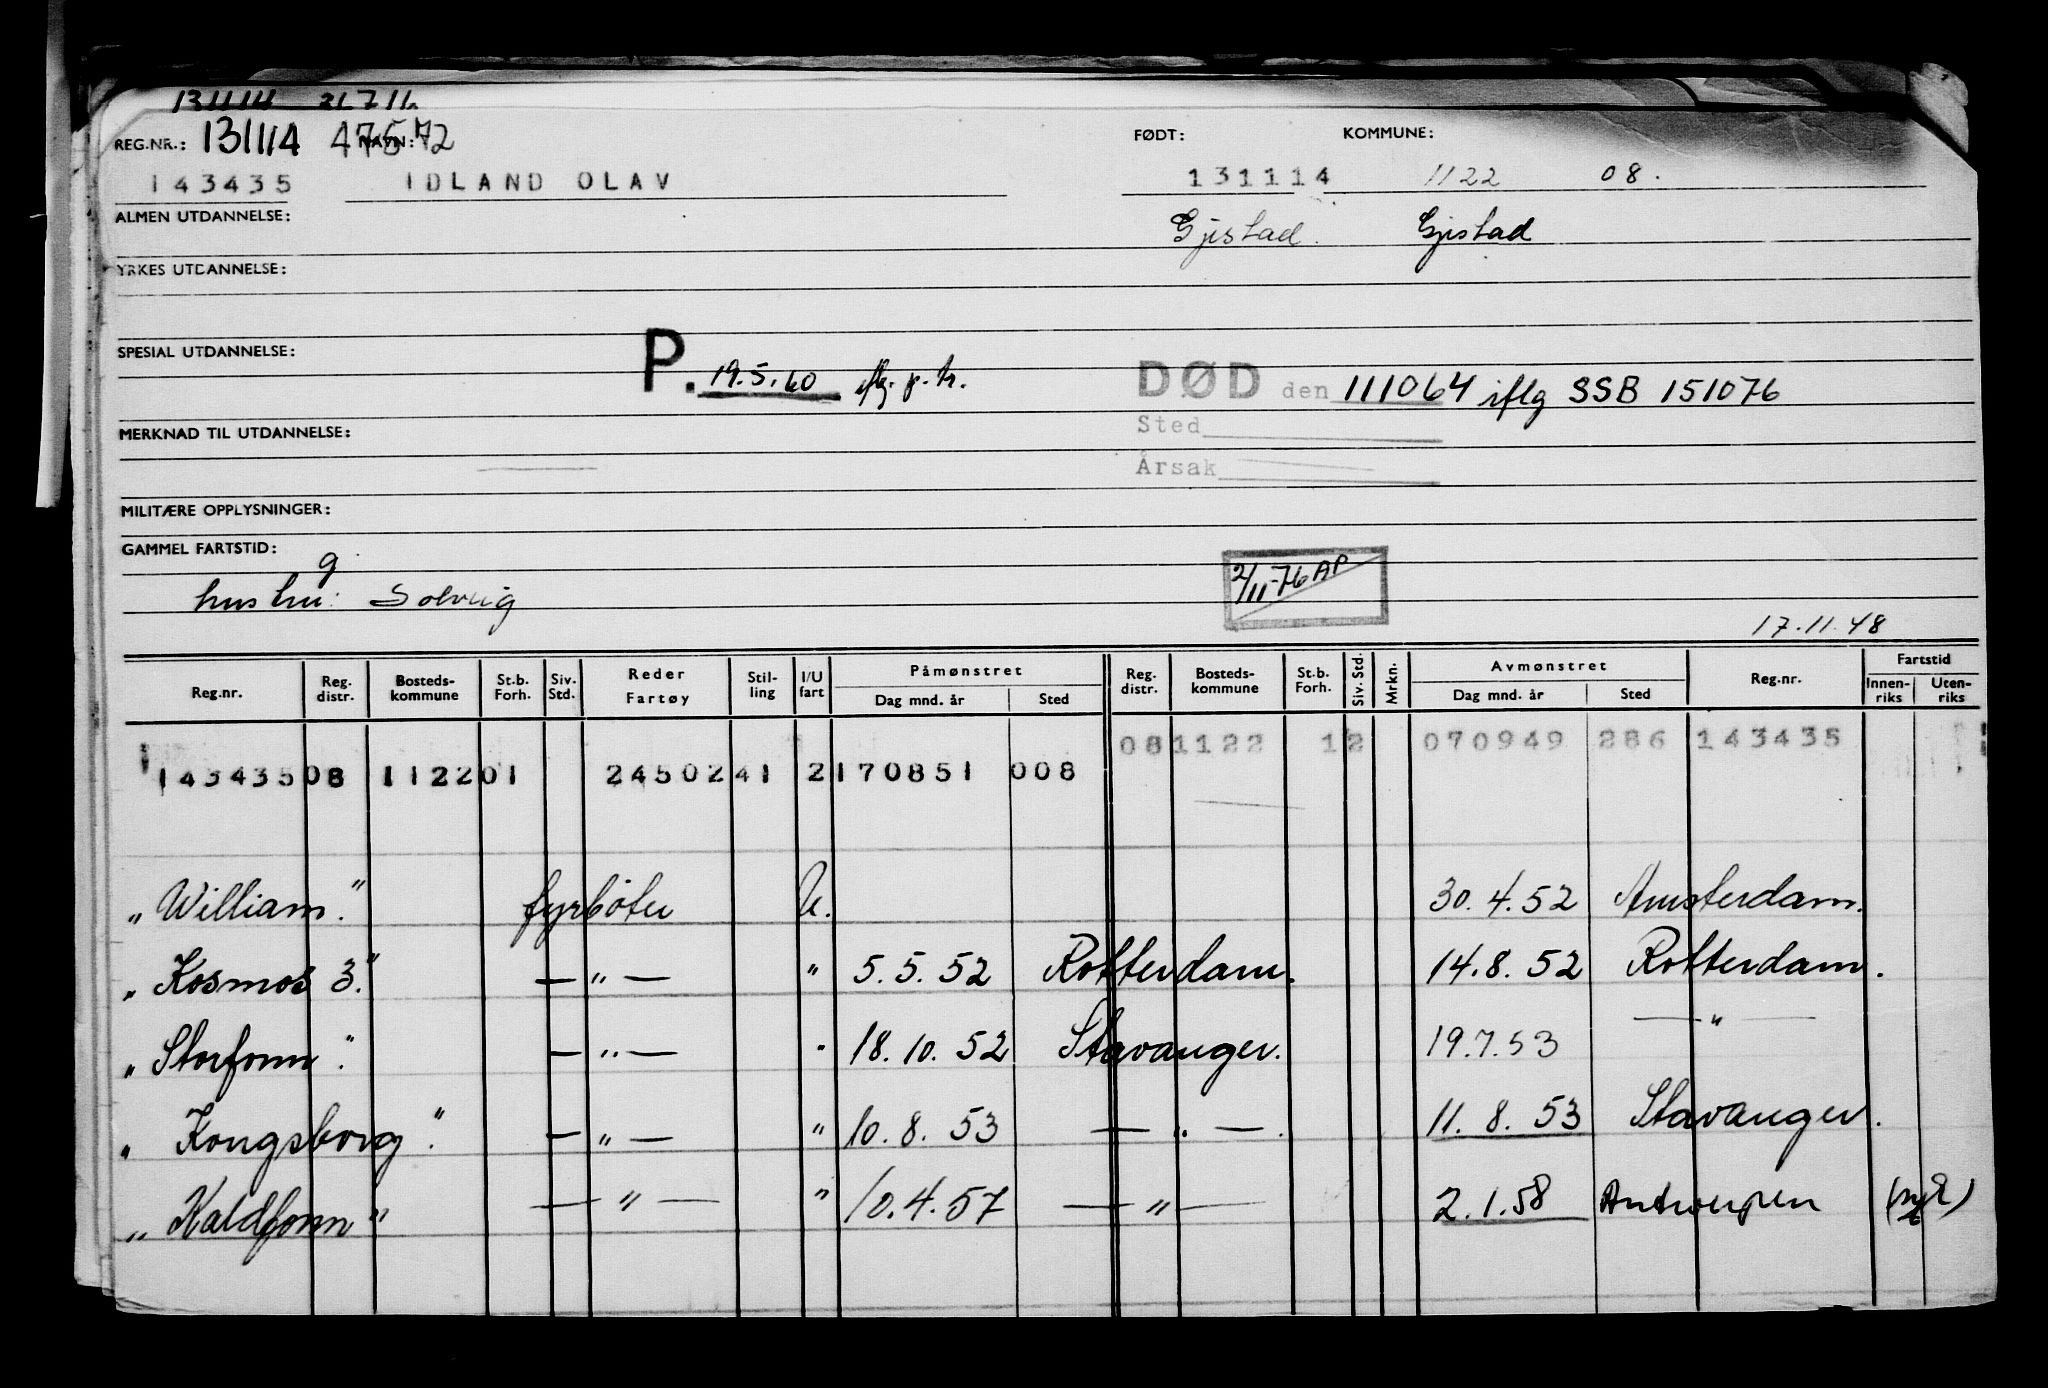 131114 21 7 16
REG.NR.: 131114 47572 FØDT: KOMMUNE:
143435 IDLAND OLAV 131114 1122 08.
ALMEN UTDANNELSE: Gjestad. Gjestad
YRKES UTDANNELSE:
SPESIAL UTDANNELSE:
P. 19.5.60 iflg. p.k. DØD den 111064 iflg SSB 151076
MERKNAD TIL UTDANNELSE: Sted
Årsak
MILITÆRE OPPLYSNINGER:
GAMMEL FARTSTID:
g
hustru: Solveig 2/11-76 AP
17.11.48
Reg.nr. Reg. distr. Bosteds-kommune St.b. Forh. Siv. Std. Reder Fartøy Stil-ling I/U fart Påmønstret Dag mnd. år Sted Reg. distr. Bosteds-kommune St.b. Forh. Siv. Std. Mrkn. Avmønstret Dag mnd. år Sted Reg.nr. Fartstid Innen-riks Uten-riks
081122 12 070949 286 143435
143435 08 1122 01 2450241 2 170851 008
„William." fyrbøter U. 30.4.52 Amsterdam.
„Kosmos 3." — " — " 5.5.52 Rotterdam. 14.8.52 Rotterdam.
„Storfonn". — " — " 18.10.52 Stavanger. 19.7.53 — " —
„Kongsborg". — " — " 10.8.53 — " —. 11.8.53 Stavanger.
„Kaldfonn" — " — " 10.4.57 — " — 2.1.58 Antwerpen